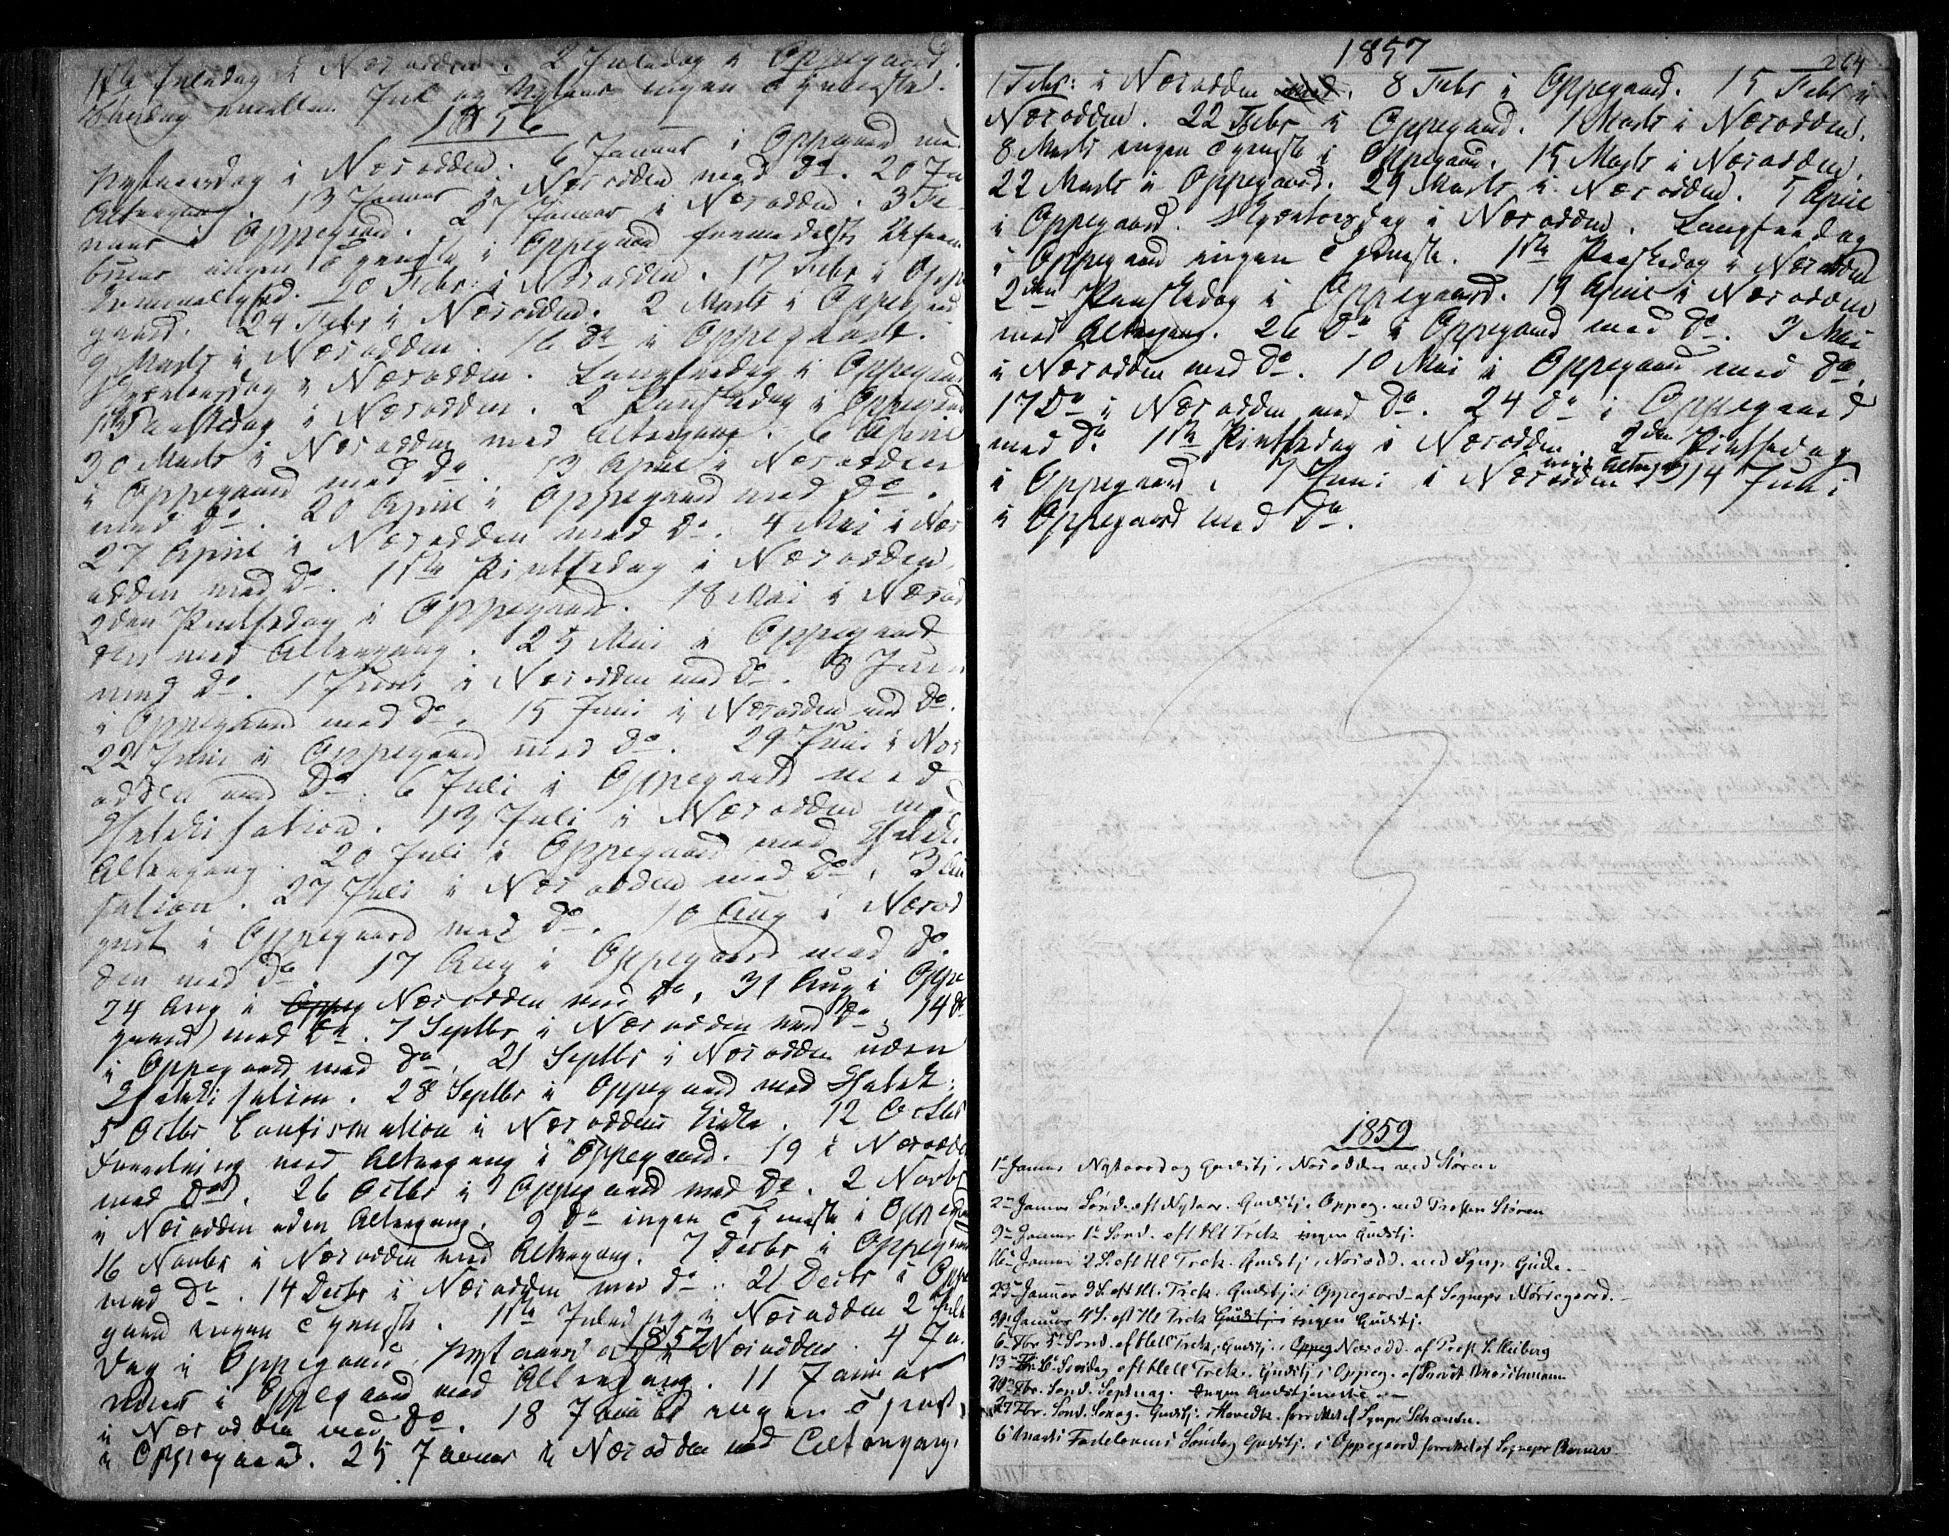 1ste Juledag i Næsodden. 2 Juledag i Oppegaard.
Søndag mellem Juul og Nytaar ingen Tjeneste.
1856
Nytaarsdag i Næsodden. 6 Januar i Oppegaard med
Altergang. 13 Januar i Næsodden med do. 20 Ja
nuar i Oppegaard. 27 Januar i Næsodden. 3 Fe
bruar ingen Tjeneste i Oppegaard formedelst
10 Febr: i Næsodden. 17 Febr i Oppe
gaard. 24 Febr i Næsodden. 2 Marts i Oppegaard
9 Marts i Næsodden. 16 do i Oppegaard.
Skjærtorsdag i Næsodden. Langfredag i Oppegaard
1ste Paaskedag i Næsodden. 2 Paaskedag i Oppegaard
30 Marts i Næsodden med Altergang. 6 April
i Oppegaard med do. 13 April i Næsodden
med do. 20 April i Oppegaard med do.
27 April i Næsodden med do. 4 Mai i Næs
odden med do. 1ste Pintsedag i Næsodden.
2den Pintsedag i Oppegaard. 18 Mai i Næsod
den med Altergang. 25 Mai i Oppegaard
med do. 1 Juni i Næsodden med do. 8 Juni
i Oppegaard med do. 15 Juni i Næsodden med do.
22 Juni i Oppegaard med do. 29 Juni i Næs
odden med do. 6 Juli i Oppegaard med
Katekisation. 13 Juli i Næsodden med
Altergang. 20 Juli i Oppegaard med Kateki
sation. 27 Juli i Næsodden med do. 3 Au
gust i Oppegaard med do. 10 Aug i Næsod
den med do. 17 Aug i Oppegaard med do.
24 Aug i Oppeg Næsodden med do. 31 Aug i Oppe
gaard med do. 7 Septbr i Næsodden med do. 14 do
i Oppegaard med do. 21 Septbr i Næsodden uden
Katekisation. 28 Septbr i Oppegaard med Katek:
5 Octbr Confirmation i Næsoddens Kirke. 12 Octbr
med Altergang i Oppegaard. 19 i Næsodden
med do. 26 Octbr i Oppegaard med do. 2 Novbr
i Næsodden uden Altergang. 9 do ingen Tjeneste i Oppegaard
16 Novbr i Næsodden med Altergang. 7 Decbr i Oppegaard
med do. 14 Decbr i Næsodden med do. 21 Decbr i Oppe
gaard ingen Tjeneste. 1ste Juledag i Næsodden 2 Jule
dag i Oppegaard. 1857 Nytaarsdag i Næsodden. 4 Ja
nuar i Oppegaard med Altergang. 11 Januar
i Næsodden med do. 18 Januar ingen Tjenest.
i Oppegaard. 25 Januar i Næsodden med Altergang.
1857
264
1 Febr: i Næsodden med. 8 Febr i Oppegaard. 15 Febr i
Næsodden. 22 Febr i Oppegaard. 1 Marts i Næsodden.
8 Marts ingen Tjeneste i Oppegaard. 15 Marts i Næsodden.
22 Marts i Oppegaard. 29 Marts i Næsodden. 5 April
i Oppegaard. Skjærtorsdag i Næsodden. Langfredag
i Oppegaard ingen Tjeneste. 1ste Paaskedag i Næsodden
2den Paaskedag i Oppegaard. 19 April i Næsodden
med Altergang. 26 do i Oppegaard med do. 3 Mai
i Næsodden med do. 10 Mai i Oppegaard med do.
17 do i Næsodden med do. 24 do i Oppegaard
med do. 1ste Pintsedag i Næsodden. 2den Pintsedag
i Oppegaard. 7 Juni i Næsodden med Altergang 14 Juni
i Oppegaard med do.
1859
1ste Januar Nytaarsdag Gudstj. i Næsodden ved Stören
2den Januar Sönd. eft Nytaar. Gudstj. i Oppeg. ved Stören
9de Januar 1ste Sönd. eft Hl. Trek. ingen Gudstj.
16de Januar 2 S. eft Hl Trek. Gudstj. i Næsodd. ved Sgnpr Gude.
23de Januar 3 S. eft Hl. Trek. Gudstj. i Oppegaard af Sognepr Nörregaard.
30 Januar 4 S. eft Hl Trek Gudstj. i ingen Gudstj.
6te Fbr 5te Sönd. eft Hell Trek. Gudstj. i Oppeg Næsodd. af Prof. Heiberg
13de Fbr. 6te Söndag eft Hell Trek. Gudstj. i Oppeg. af Provst
20de Fbr. Sönd. Septuag. Ingen Gudstjeneste.
27 Fbr. Sönd. Sexag. Gudstj. Hovedk. forrettet af Sgnpr
6te Marts Fastelavns Söndag Gudstj. i Oppegaard forrettet af Sognepr